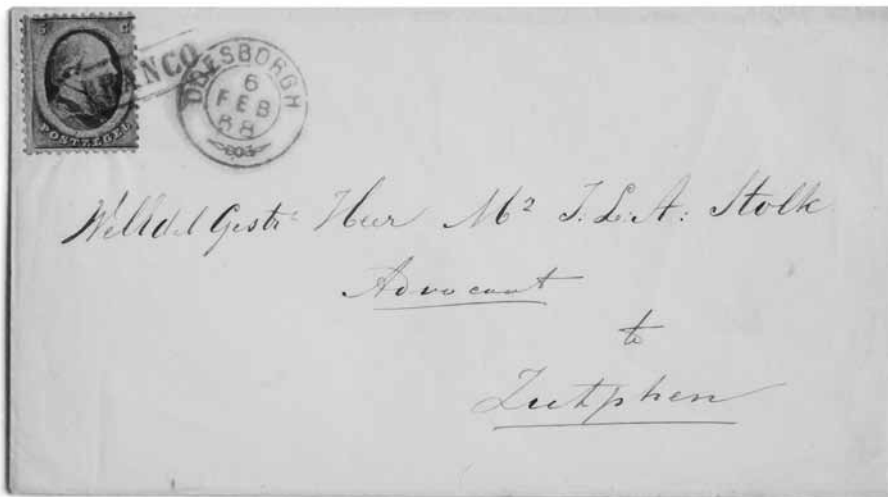 5 C
FRANCO
POSTZEGEL
DOESBORGH
6
FEB
68
WelEdel Gestr: Heer Mr J. L. A: Stolk
Advocaat
te
Zutphen